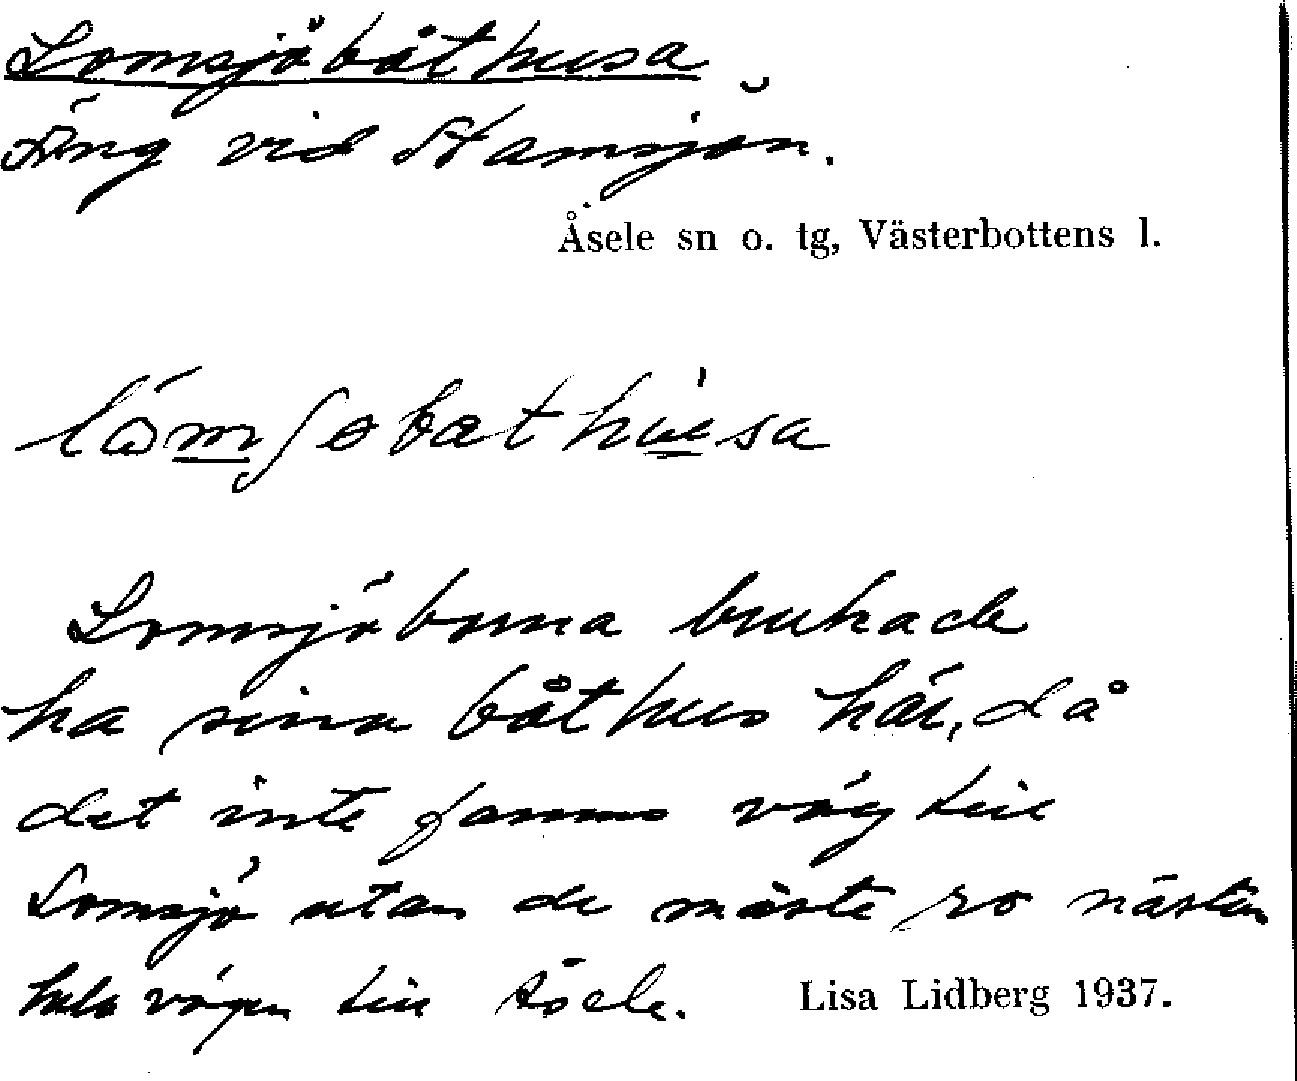 Lomsjöbåthusa
Äng vid Stamsjön.
Åsele sn o. tg, Västerbottens l.
Lomsjöborna brukade
ha sina båthus här, då
det inte fanns väg till
Lomsjö utan de måste ro nästan
hela vägen till Åsele.
Lisa Lidberg 1937.